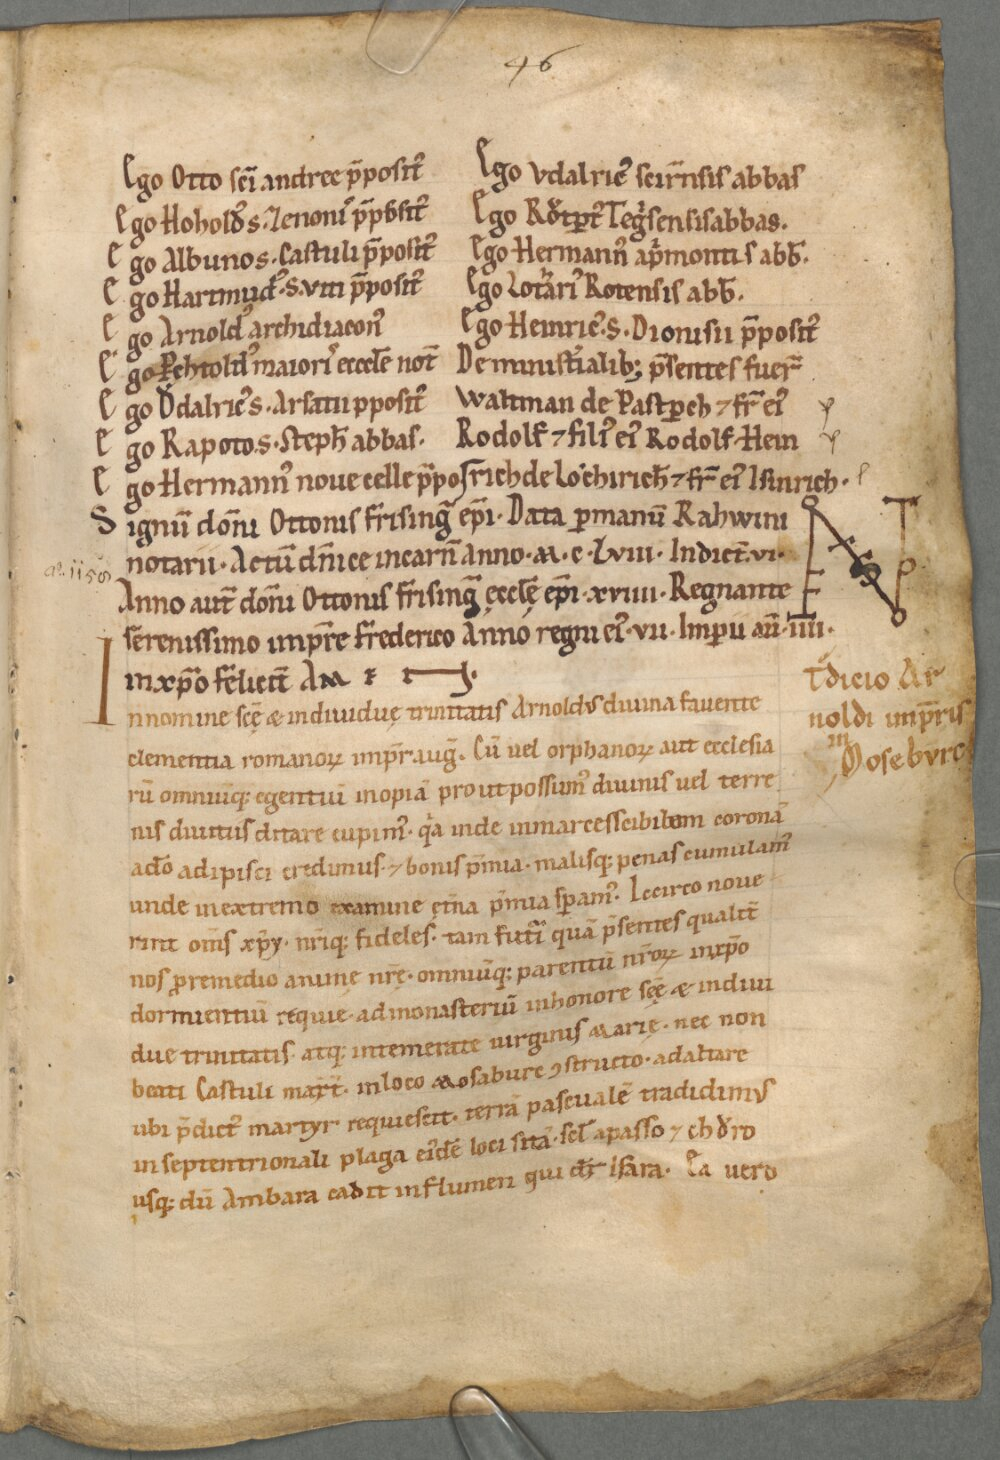 46
Ego Otto scī andree p̄posit᾽
Ego Hohold᾽ s. Zenonis p̄posit᾽
Ego Albuno s. Castuli p̄posit᾽
Ego Hartmud᾽ s. viti p̄posit᾽
Ego Arnold᾽ archidiacon᾽
Ego Pehtold᾽ maiori᾽ eccle not̄
Ego Vͦdalric᾽ s. Arsatii pposit᾽
Ego Rapoto s. Steph̄ abbas.
Ego Hermann᾽ noue celle p̄pos
Ego Vdalric᾽ scirnsis abbas
Ego Rͦvtpt᾽ Teg̾sensis abbas.
Ego Hermann᾽ ap̾montis abb̄.
Ego Lotari᾽ Rotensis abb̄.
Ego Heinric᾽ s. Dionisii p̄posit᾽
De minist̾ialib; p̄sentes fuer̄
Waltman de Pastpch ⁊ fr̄ ei᾽
Rodolf ⁊ fili᾽ ei᾽ Rodolf Hein
rich de Lochirich̄ ⁊ fr̄ ei᾽ Isinrich.
Signū dom̄ni Ottonis frising̾ ep̄i. Data p manū Rahwini
notarii. Actū dn̄ice incarn̄ anno. M. C. Lviii. Indict̄. vi.
aͦ. 1158
Anno aut̄ dom̄ni Ottonis frising̾ ecclę ep̄i. xviiii. Regnante
serenissimo imp̄re frederico Anno regni ei᾽. vii. Imperii au̅. iiii.
in xp̄o felicit̄ AMEN.
Iudicio Ar
noldi imp̄ris
in
Mosebvrc
In nomine scę & indiuiduę trinitatis Arnoldus diuina fauente
clementia romanoꝝ imp̄r aug̾. Cū uel orphanoꝝ aut ecclesia
rū omniūq; egentiū inopiā prout possum᾽ diuinis uel terre
nis diuitiis ditare cupim᾽. q̾a inde inmarcesscibilem coronā
a do᷑ adipisci credimus. ⁊ bonis p̄mia. malisq; penas cumulam᾽
unde in extremo examine ęt̄na p̄mia speram᾽. Iccirco noue
rint om̄s xp̄y. nr̄iq; fideles. tam futuri quā p̄sentes qualit̄
nos pro remedio animę nr̄ę. omniūq; parentū nr̄oꝝ in xp̄o
dormientiū requie. ad monasteriū in honore scę & indiui
due trinitatis. atq; intemerate uirginis Marię. nec non
beati Castuli mart̄. in loco Mosaburc ꝯstructo. ad altare
ubi p̄dict᾽ martyr requiescit. terrā pascualē tradidimus
in septentrionali plaga eiͥdē loci sitā. scl̄ a passo ⁊ ch vro
usq; dū Ambara cadit in flumen qui dr̄ Isara. Ea uero